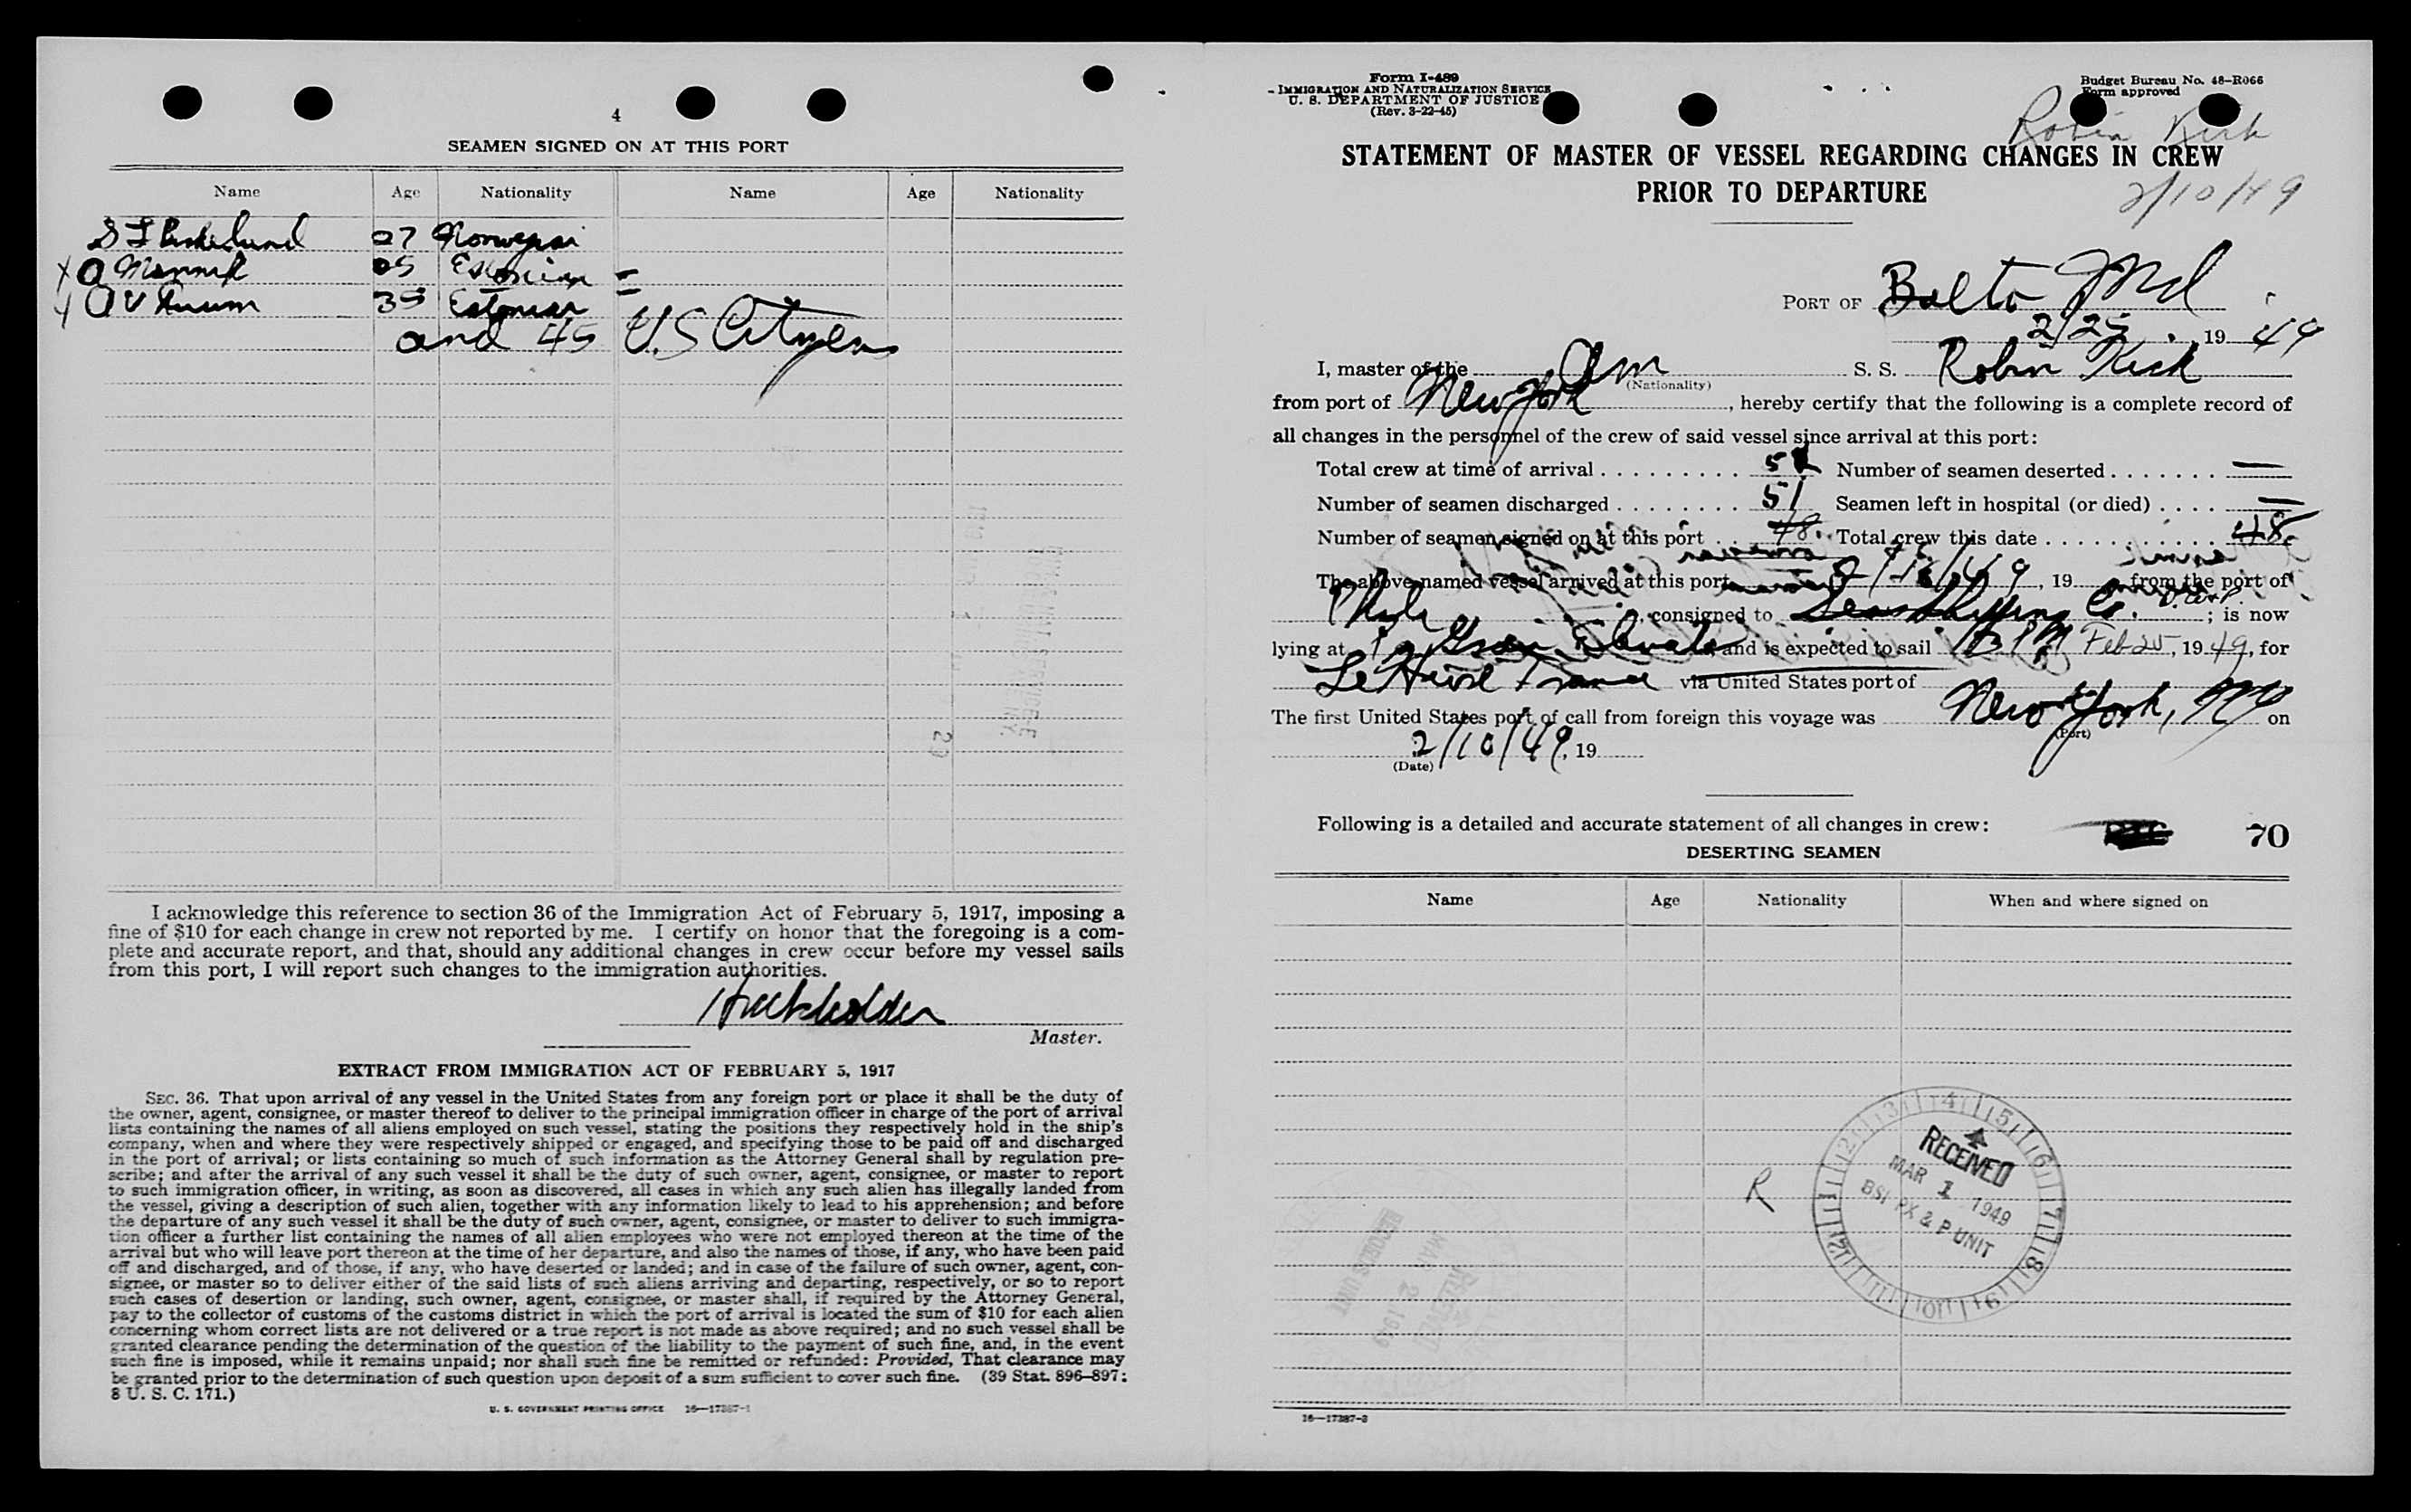 4
SEAMEN SIGNED ON AT THIS PORT
Name Age Nationality Name Age Nationality
27
X O 25 Estonian =
35 Estonian
and 45 U.S Citizens
I acknowledge this reference to section 36 of the Immigration Act of February 5, 1917, imposing a
fine of $10 for each change in crew not reported by me. I certify on honor that the foregoing is a com-
plete and accurate report, and that, should any additional changes in crew occur before my vessel sails
from this port, I will report such changes to the immigration authorities.
Master.
EXTRACT FROM IMMIGRATION ACT OF FEBRUARY 5, 1917
SEC. 36. That upon arrival of any vessel in the United States from any foreign port or place it shall be the duty of
the owner, agent, consignee, or master thereof to deliver to the principal immigration officer in charge of the port of arrival
lists containing the names of all aliens employed on such vessel, stating the positions they respectively hold in the ship's
company, when and where they were respectively shipped or engaged, and specifying those to be paid off and discharged
in the port of arrival; or lists containing so much of such information as the Attorney General shall by regulation pre-
scribe; and after the arrival of any such vessel it shall be the duty of such owner, agent, consignee, or master to report
to such immigration officer, in writing, as soon as discovered, all cases in which any such alien has illegally landed from
the vessel, giving a description of such alien, together with any information likely to lead to his apprehension; and before
the departure of any such vessel it shall be the duty of such owner, agent, consignee, or master to deliver to such immigra-
tion officer a further list containing the names of all alien employees who were not employed thereon at the time of the
arrival but who will leave port thereon at the time of her departure, and also the names of those, if any, who have been paid
off and discharged, and of those, if any, who have deserted or landed; and in case of the failure of such owner, agent, con-
signee, or master so to deliver either of the said lists of such aliens arriving and departing, respectively, or so to report
such cases of desertion or landing, such owner, agent, consignee, or master shall, if required by the Attorney General,
pay to the collector of customs of the customs district in which the port of arrival is located the sum of $10 for each alien
concerning whom correct lists are not delivered or a true report is not made as above required; and no such vessel shall be
granted clearance pending the determination of the question of the liability to the payment of such fine, and, in the event
such fine is imposed, while it remains unpaid; nor shall such fine be remitted or refunded: Provided, That clearance may
be granted prior to the determination of such question upon deposit of a sum sufficient to cover such fine. (39 Stat. 896–897;
8 U. S. C. 171.)
U. S. GOVERNMENT PRINTING OFFICE 16—17387-1
Form I-489
IMMIGRATION AND NATURALIZATION SERVICE
U. S. DEPARTMENT OF JUSTICE
(Rev. 3-22-45)
Budget Bureau No. 48-R066
Form approved
Robin Kirk
STATEMENT OF MASTER OF VESSEL REGARDING CHANGES IN CREW
PRIOR TO DEPARTURE
2/10/49
PORT OF Balto Md
2/25 19 49
I, master of the Am S. S. Robin Kirk
(Nationality)
from port of New York, hereby certify that the following is a complete record of
all changes in the personnel of the crew of said vessel since arrival at this port:
Total crew at time of arrival Number of seamen deserted —
Number of seamen discharged 51 Seamen left in hospital (or died) —
Number of seamen signed on at this port 48 Total crew this date 48
The above-named vessel arrived at this port , 19 from the port of
Phila , consigned to Seas Shipping Co. ; is now
lying at and is expected to sail PM Feb 25, 19 49, for
Le Havre France via United States port of
The first United States port of call from foreign this voyage was New York, NY on
(Port)
2/10/49, 19
(Date)
Following is a detailed and accurate statement of all changes in crew:
70
DESERTING SEAMEN
Name Age Nationality When and where signed on
R
RECEIVED
MAR 1 1949
BSI PX & P UNIT
16—17387-3